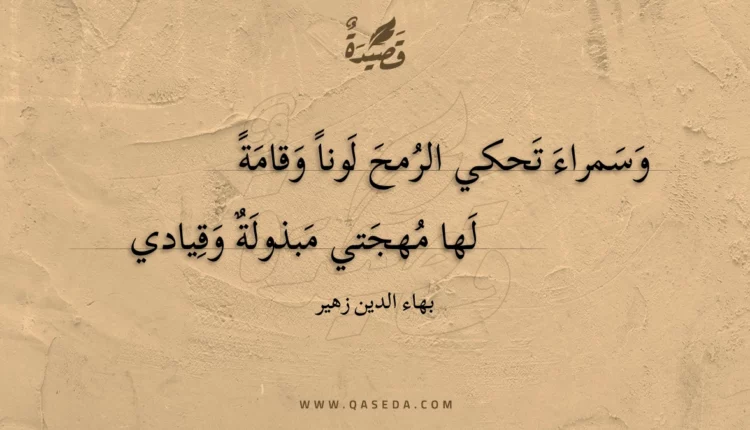 قَصِيدَةٌ
وَسَمراءَ تَحكي الرُمحَ لَوناً وَقامَةً
لَها مُهجَتي مَبذولَةٌ وَقِيادي
بهاء الدين زهير
WWW.QASEDA.COM